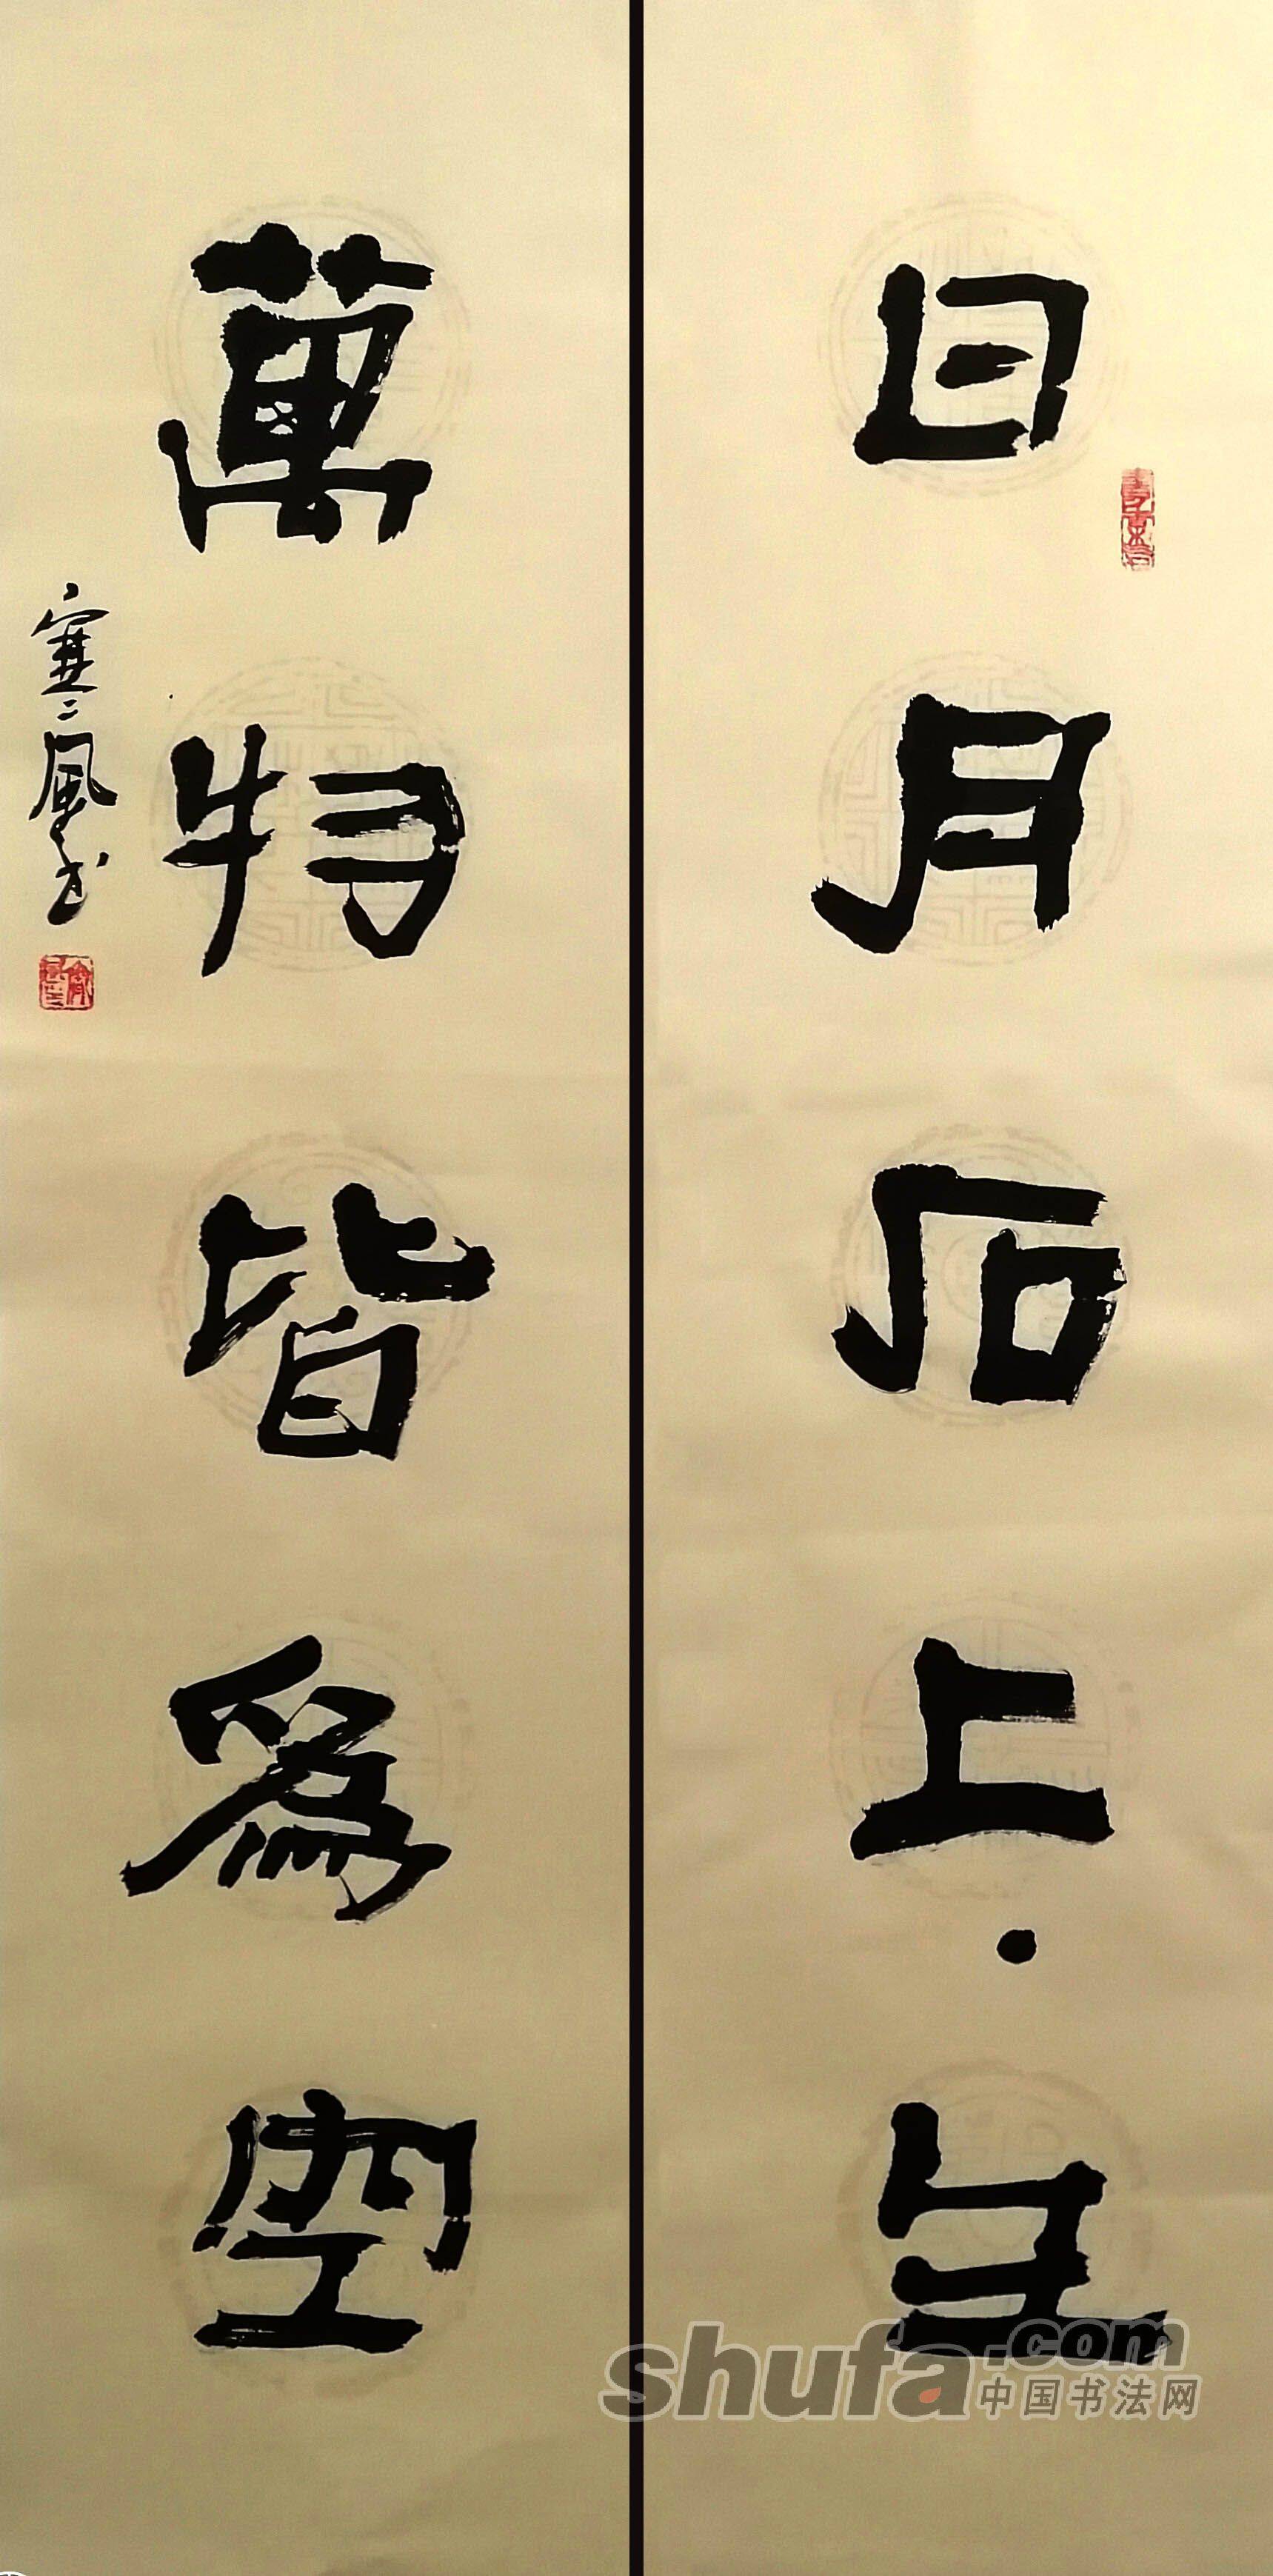 日月石上生
萬物皆為空
寒風書
shufa.com
中国书法网